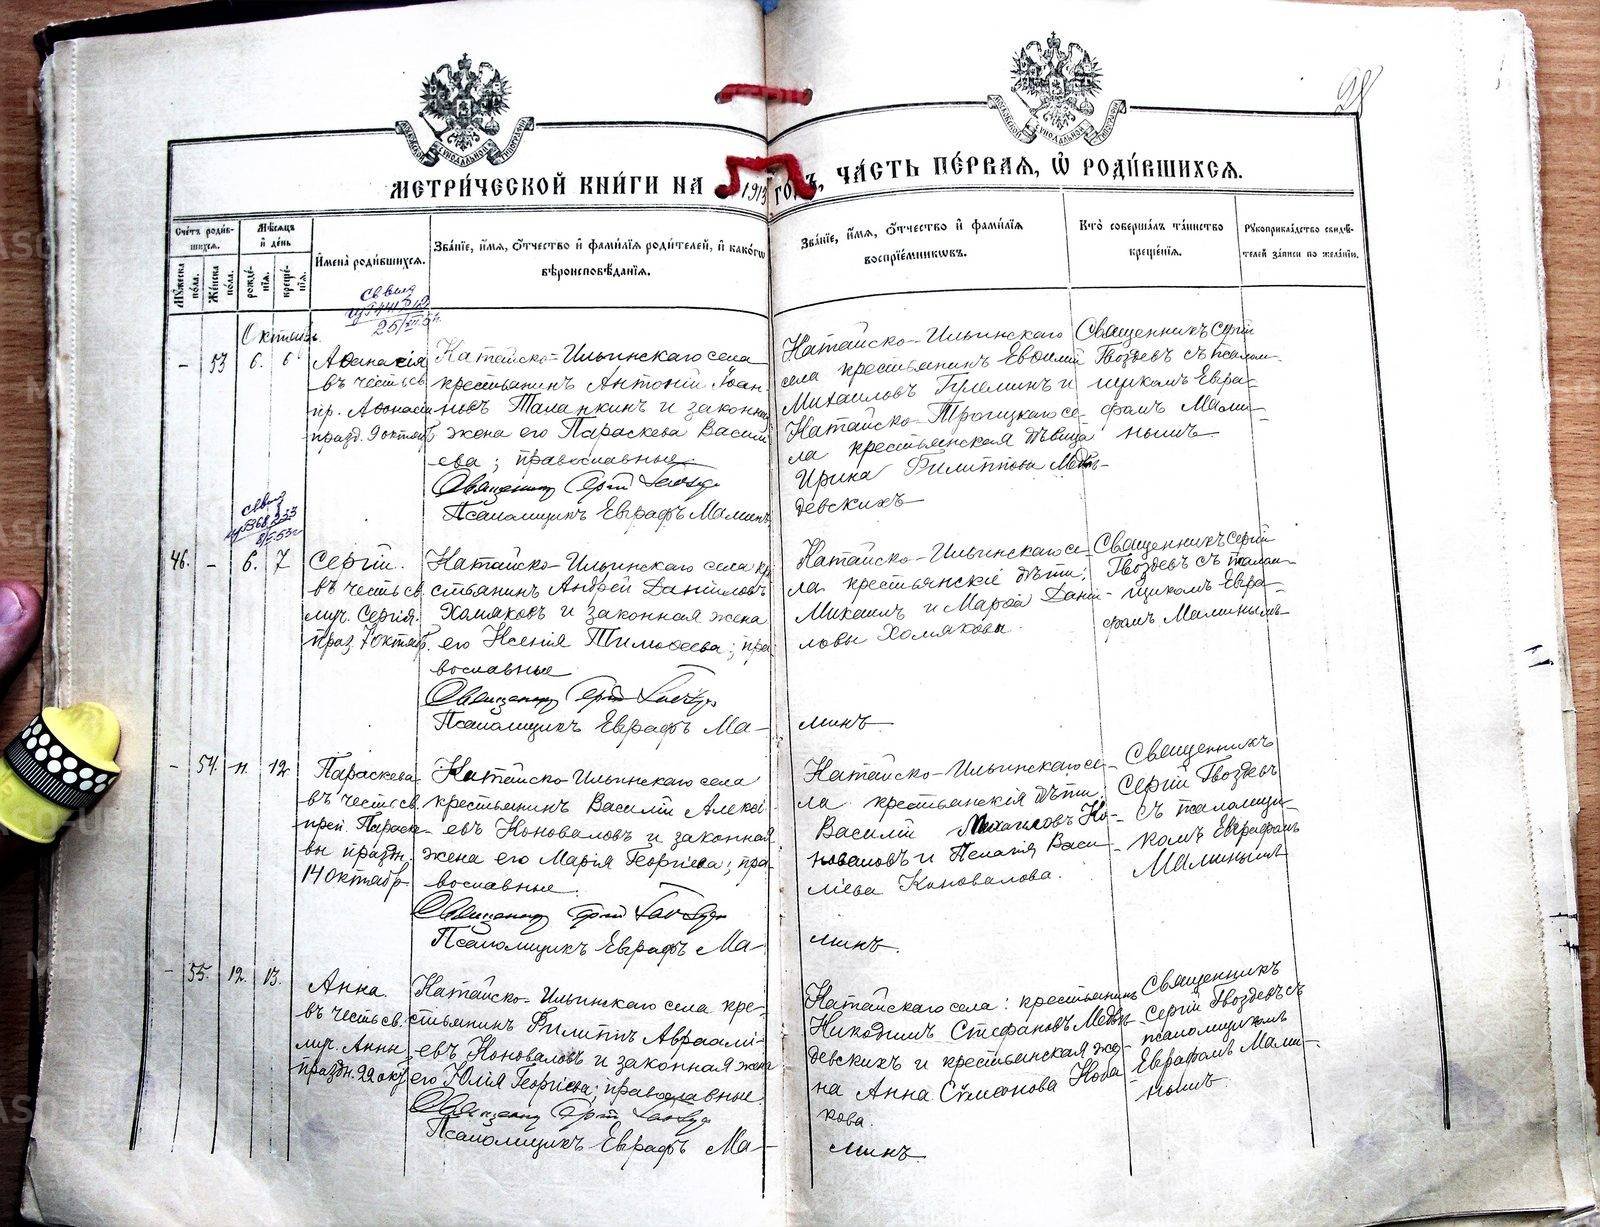 МЕТРИ́ЧЕСКОЙ КНИ́ГИ НА 1913 ГОДЪ, ЧА́СТЬ ПЕ́РВАЯ, Ѡ РОДИ́ВШИХСЯ.
Сче́тъ роди́в-
шихся.
Му́жеска по́ла.
Же́нска по́ла.
Мѣ́сяцъ и҆ де́нь
рожде́-
нїя.
креще́-
нїя.
И҆мена̀ роди́вшихся.
Зва́нїе, и҆́мя, ѻ҆́тчество и҆ фами́лїя роди́телей, и҆ како́гѡ
вѣроисповѣ́данїя.
Зва́нїе, и҆́мя, ѻ҆́тчество и҆ фами́лїя
воспрїе́мникѡвъ.
Кто̀ соверша́лъ та́инство
креще́нїя.
Рꙋкоприкла́дство свидѣ́-
телей за́писи по жела́нїю.
Октябрь.
- 53 6. 6
Аѳанасія
въ честь св.
пр. Аѳанасіи
празд. 9 октяб.
Катайско-Ильинскаго села
крестьянинъ Антоній Іоан-
новъ Таланкинъ и законная
жена его Параскева Василі-
ева; православные.
Священникъ Сергій Гвоздевъ
Псаломщикъ Евграфъ Малинъ
Катайско-Ильинскаго
села крестьянинъ Евѳимій
Михаиловъ и
Катайско-Троицкаго се-
ла крестьянская дѣвица
Ирина Филиппова Медвѣ-
девскихъ
Священникъ Сергій
Гвоздевъ съ псалом-
щикомъ Евгра-
фомъ Мали-
нымъ
46. - 6. 7
Сергій.
въ честь св.
муч. Сергія.
праз. 7 октяб.
Катайско-Ильинскаго села кре
стьянинъ Андрей Даниловъ
Хомяковъ и законная жена
его Ксенія Тимоѳеева; пра-
вославные
Священникъ Сергій Гвоздевъ
Псаломщикъ Евграфъ Ма-
линъ
Катайско-Ильинскаго се-
ла крестьянскіе дѣти:
Михаилъ и Марѳа Дани-
ловы Хомяковы.
Священникъ Сергій
Гвоздевъ съ псалом-
щикомъ Евгра-
фомъ Малинымъ
- 54. 11. 12
Параскева
въ честь св.
преп. Параске-
вы праздн.
14 октябр.
Катайско-Ильинскаго села
крестьянинъ Василій Алексі-
евъ Коноваловъ и законная
жена его Марія Георгіева; пра-
вославные.
Священникъ Сергій Гвоздевъ
Псаломщикъ Евграфъ Ма-
линъ.
Катайско-Ильинскаго се-
ла крестьянскія дѣти:
Василій Михаиловъ Ко-
новаловъ и Пелагія Васи-
ліева Коновалова.
Священникъ
Сергій Гвоздевъ
съ псаломщи-
комъ Евграфомъ
Малинымъ
- 55. 12. 13.
Анна.
въ честь св.
муч. Анны
праздн. 22 окт.
Катайско-Ильинскаго села кре-
стьянинъ Филиппъ Авраамі-
евъ Коноваловъ и законная жена
его Юлія Георгіева; православные.
Священникъ Сергій Гвоздевъ
Псаломщикъ Евграфъ Ма-
линъ
Катайскаго села: крестьянинъ
Никодимъ Стефановъ Медвѣ-
девскихъ и крестьянская же-
на Анна Сѵмеонова Нова-
кова.
Священникъ
Сергій Гвоздевъ съ
псаломщикомъ
Евграфомъ Мали-
нымъ.